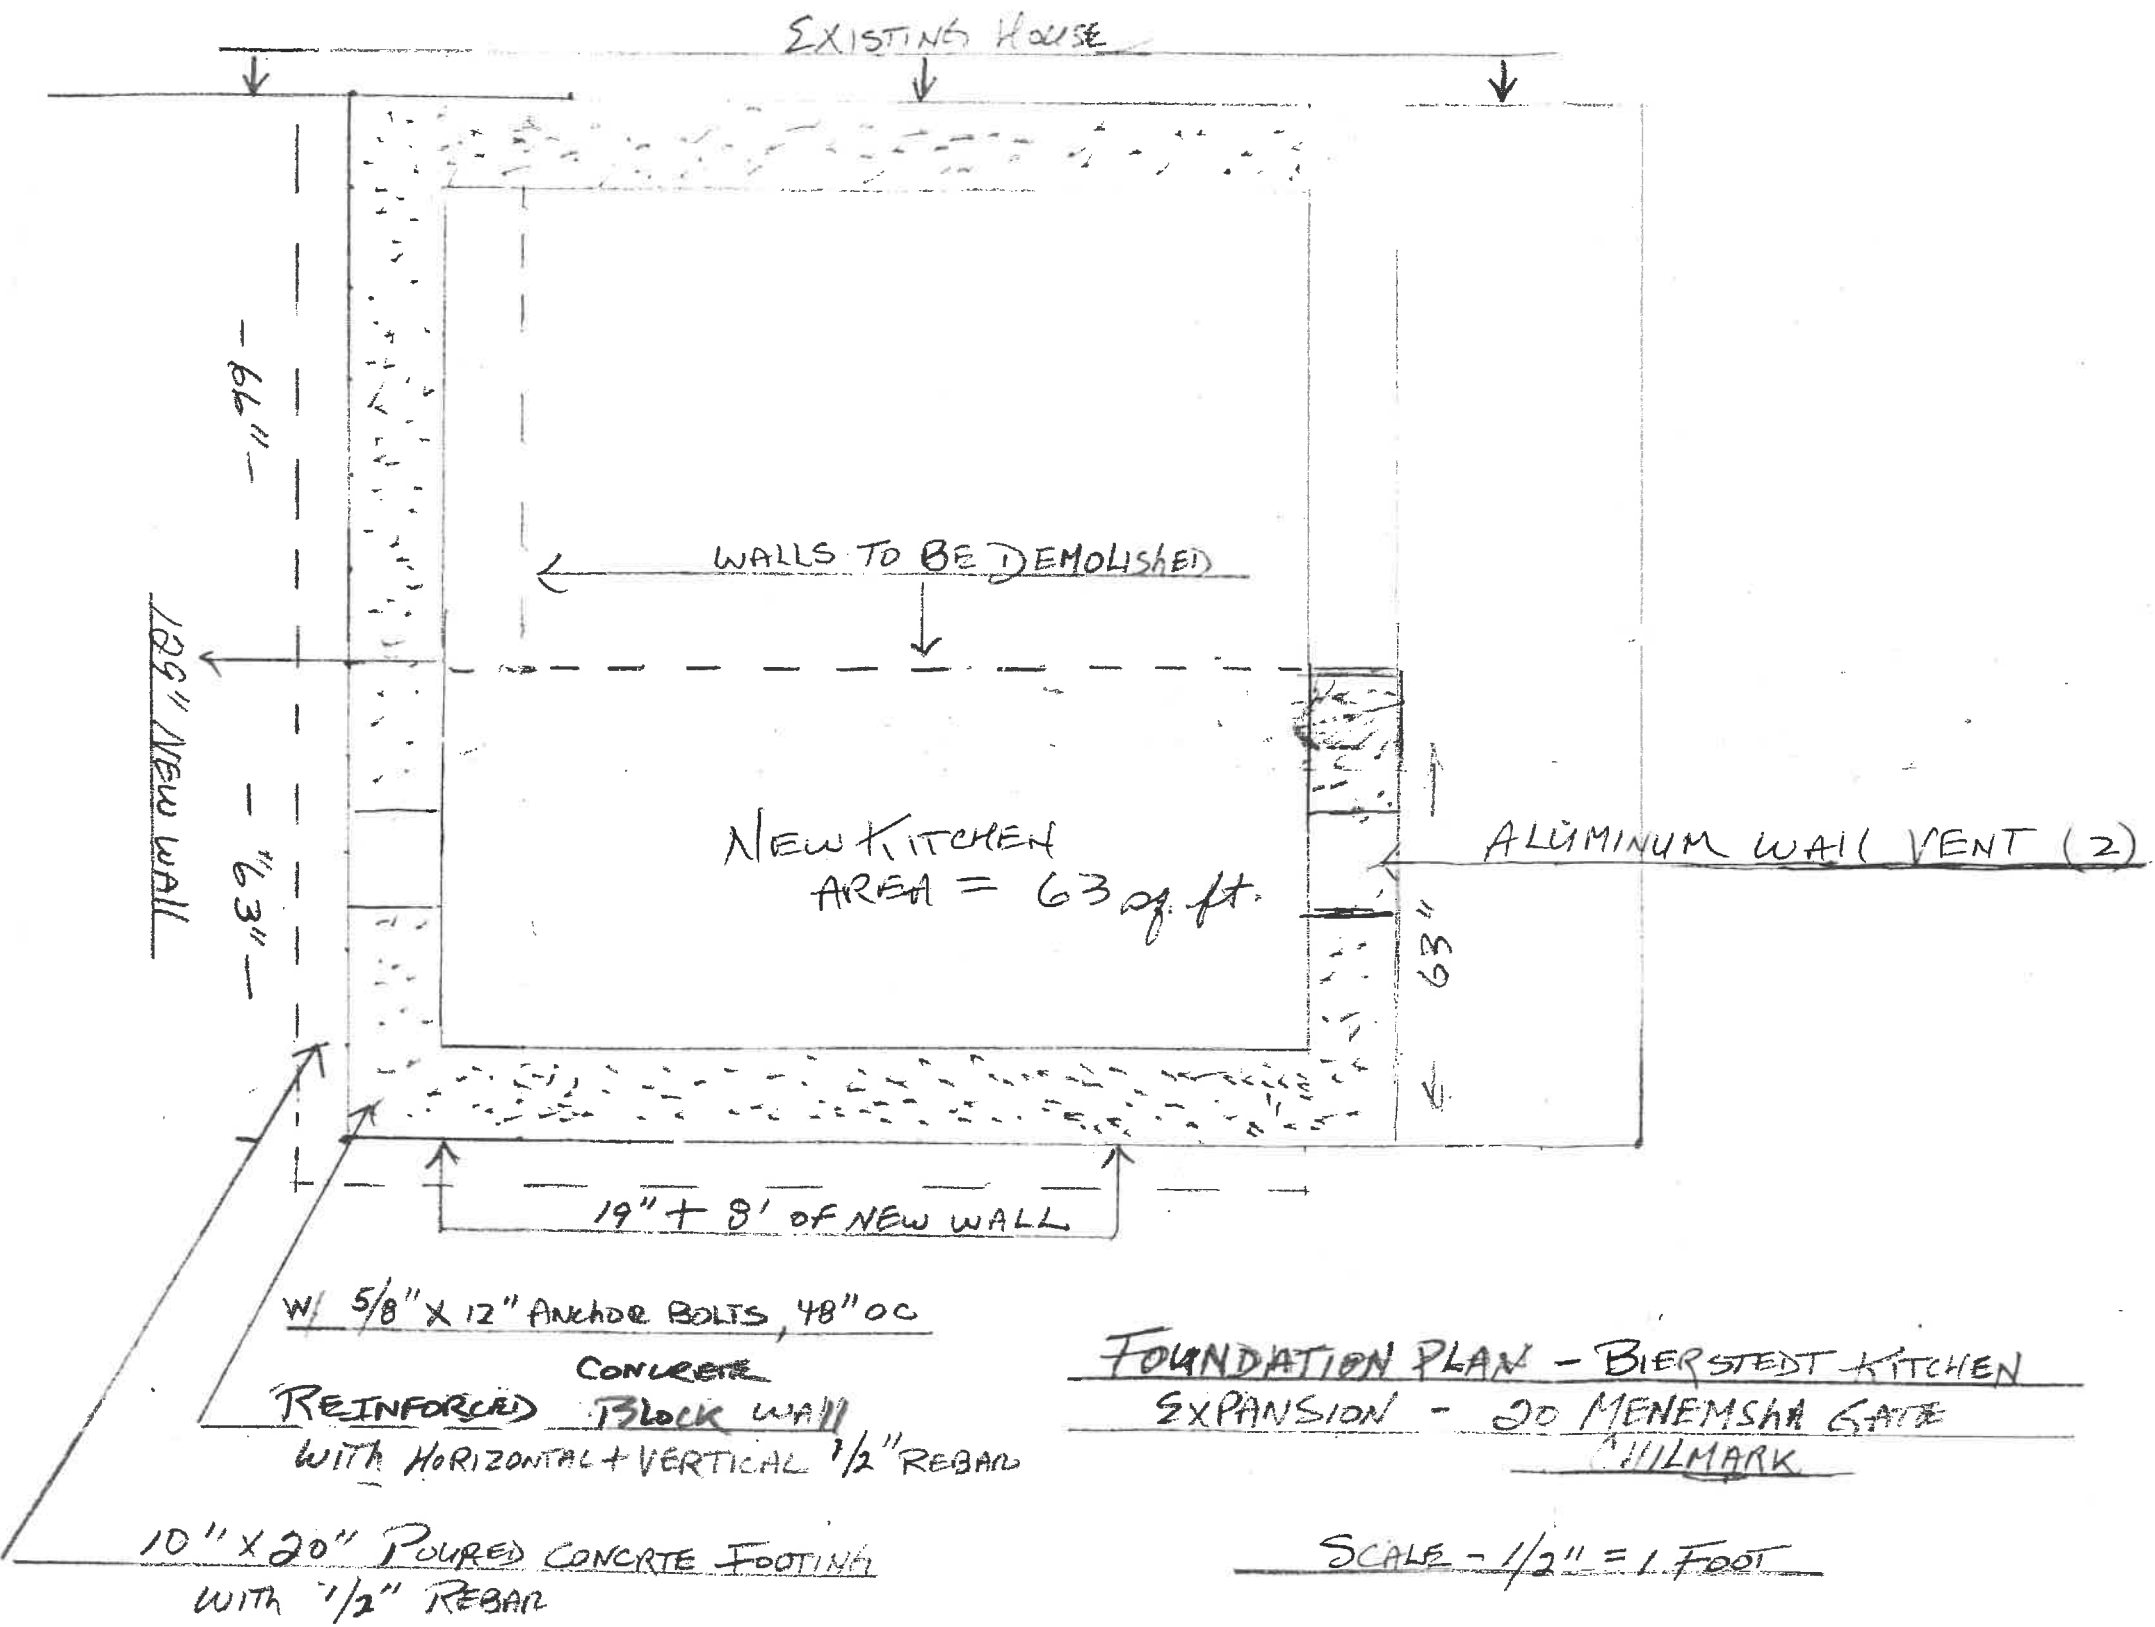 EXISTING HOUSE
- 66" -
WALLS TO BE DEMOLISHED
129" NEW WALL
- "63" -
NEW KITCHEN
AREA = 63 sq. ft.
ALUMINUM WALL VENT (2)
63"
19" + 8' OF NEW WALL
W/ 5/8" X 12" ANCHOR BOLTS, 48" OC
CONCRETE
REINFORCED BLOCK WALL
WITH HORIZONTAL + VERTICAL 1/2" REBAR
10" X 20" POURED CONCRTE FOOTING
WITH 1/2" REBAR
FOUNDATION PLAN - BIERSTEDT KITCHEN
EXPANSION - 20 MENEMSHA GATE
CHILMARK
SCALE - 1/2" = 1 FOOT